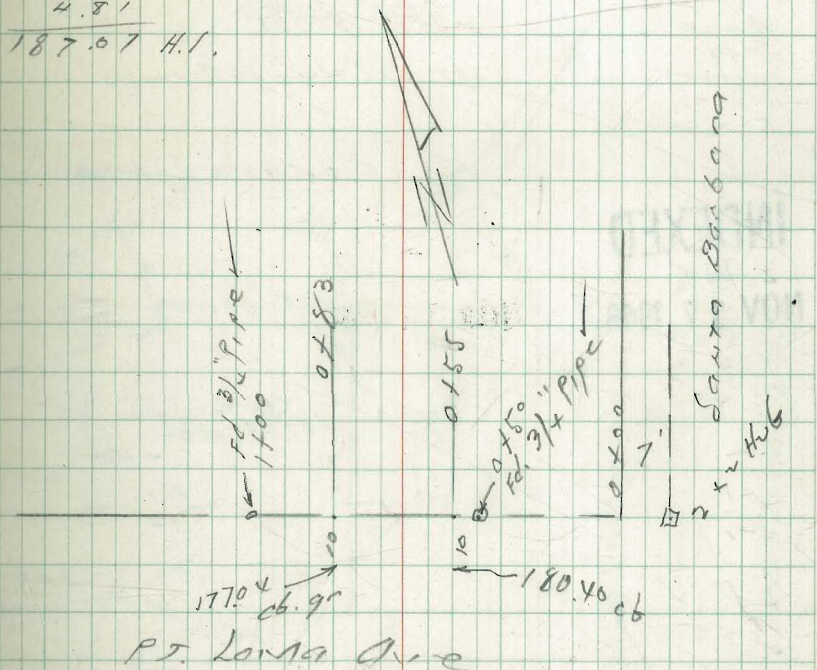 4.81
187.07 H.I.
Fd 3/4" Pipe
1+00
0+83
0+55
0+50
Fd. 3/4" Pipe
0+00
7'
Santa Barbara
2 x 2 Hub
10
10
177.04
cb. gr
180.40 cb
Pt. Loma Ave
INDEXED
NOV